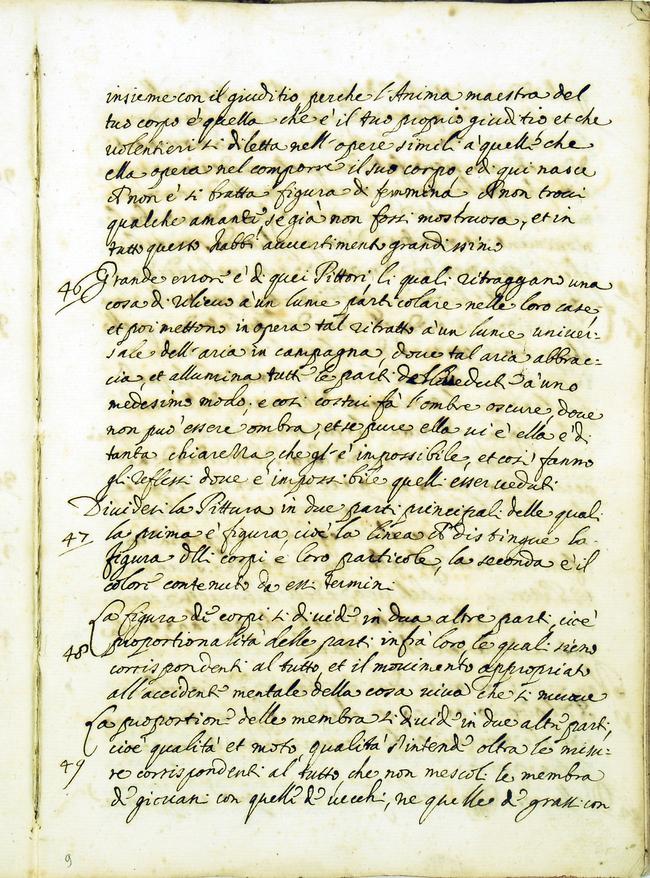 insieme con il giuditio, perche l'Anima maestra del
tuo corpo è quella che è il tuo proprio giuditio et che
volentieri si diletta nell'opere simili à quelle che
ella opera nel comporre il suo corpo, e di qui nasce
ch non è si bratta figura di femmina ch non trovi
qualche amante, se già non fossi mostruosa, et in
tutto questo habbi avvertimento grandissimo
46 Grande errore è di quei Pittori, li quali ritraggano una
cosa di rilievo a un lume particolare nelle loro case,
et poi mettono in opera tal ritratto a un lume univer=
sale dell'aria in campagna, dove tal aria abbrac=
cia, et allumina tutte le parti vedute à uno
medesimo modo, e cosi costui fà l'ombre oscure, dove
non può essere ombra, et se pure ella vi è ella è di
tanta chiarezza, che gl'è impossibile, et cosi fanno
gli reflessi dove è impossibile quelli esser veduti
Dividesi la Pittura in due parti principali delle quali
47 la prima è figura, cioè la linea ch distingue la
figura delli corpi e loro particole, la seconda è il
colore contenuto da essi termini
La figura de corpi si divide in dua altre parti, cioè
48 proportionalità delle parti infrà loro, le quali sieno
corrispondenti al tutto, et il movimento appropriato
all'accidente mentale della cosa viva che si muove
La proportione delle membra si divide in due altre parti,
cioè qualità et moto, qualità s'intende oltra le misu=
49 re corrispondenti al tutto, che non mescoli le membra
de giovani con quelle de vecchi, ne quelle de grassi con
9